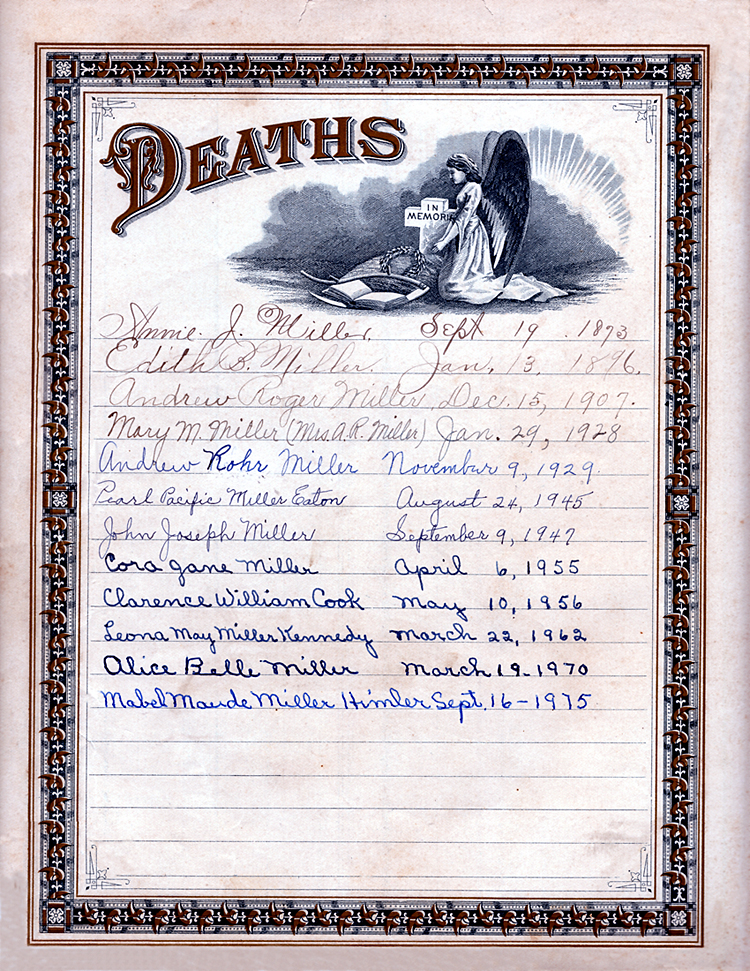 DEATHS
IN
MEMORI
Annie. J. Miller. Sept 19. 1873
Edith B. Miller. Jan. 3. 1896.
Andrew Roger Miller. Dec. 15, 1907.
Mary M. Miller (Mrs A. R. Miller) Jan. 29, 1928
Andrew Rohr Miller November 9, 1929.
Pearl Pacific Miller Eaton August 24, 1945
John Joseph Miller September 9, 1947
Cora Jane Miller April 6, 1955
Clarence William Cook May 10, 1956
Leona May Miller Kennedy March 22, 1962
Alice Belle Miller March 19-1970
Mabel Maude Miller Himler Sept. 16-1975